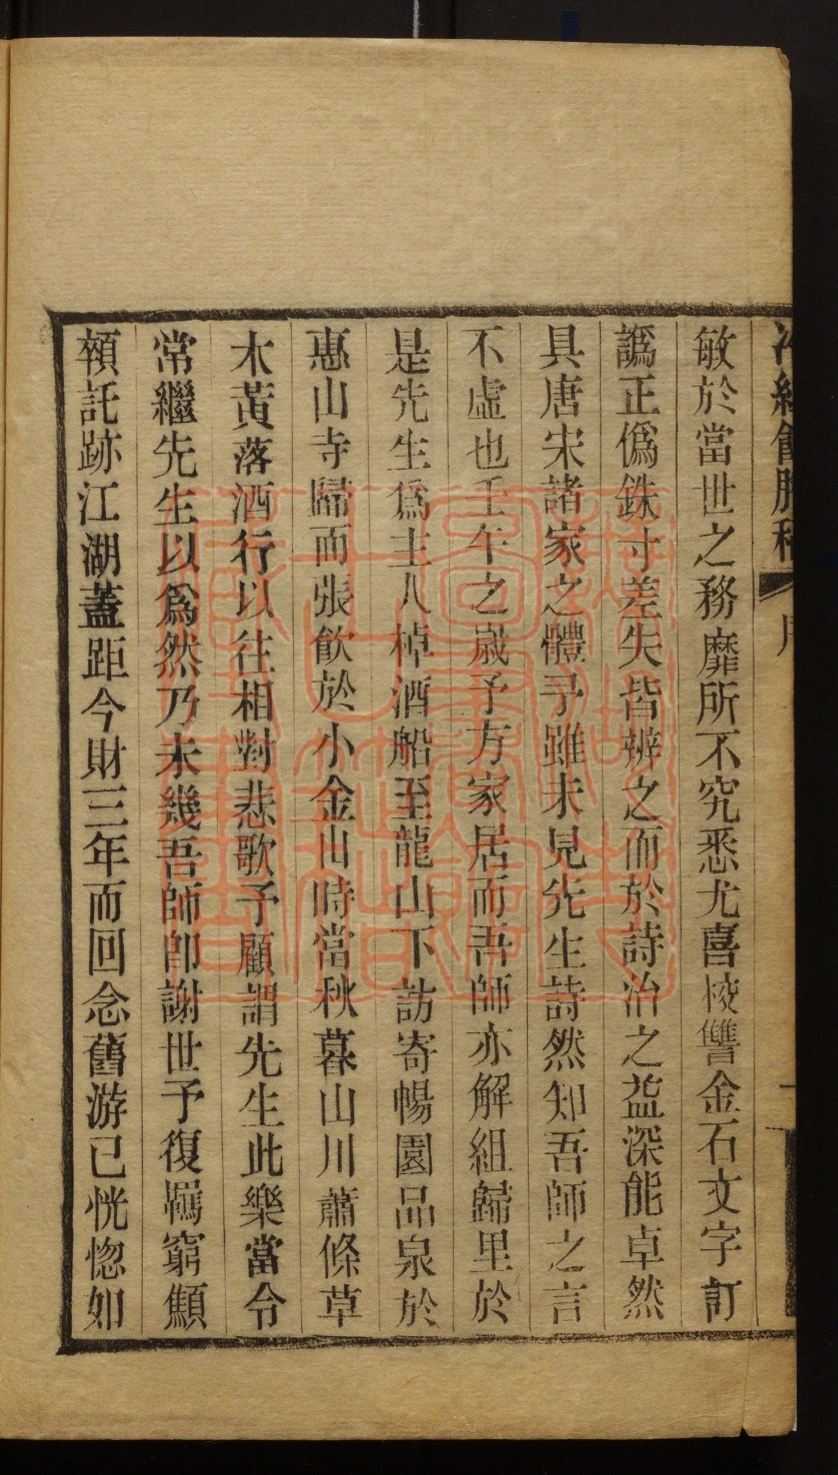 敏於當世之務靡所不究悉尤喜校讐金石文字訂
譌正僞銖寸差失皆辨之而於詩治之益深能卓然
具唐宋諸家之體予雖未見先生詩然知吾師之言
不虛也壬午之歲予方家居而吾師亦解組歸里於
是先生爲主人棹酒船至龍山下訪寄暢園品泉於
惠山寺歸而張飮於小金山時當秋暮山川蕭條草
木黃落酒行以往相對悲歌予顧謂先生此樂當令
常繼先生以爲然乃未幾吾師卽謝世予復羈窮顦
顇託跡江湖蓋距今財三年而回念舊游已恍惚如